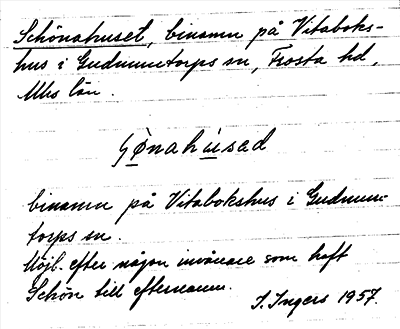 Schönahuset, binamn på Vitaboks-
hus i Gudmuntorps sn, Frosta hd,
Mlhs län.
binamn på Vitabokshus i Gudmun-
torps sn.
Möjl. efter någon invånare som haft
Schön till efternamn.
I. Ingers 1957.